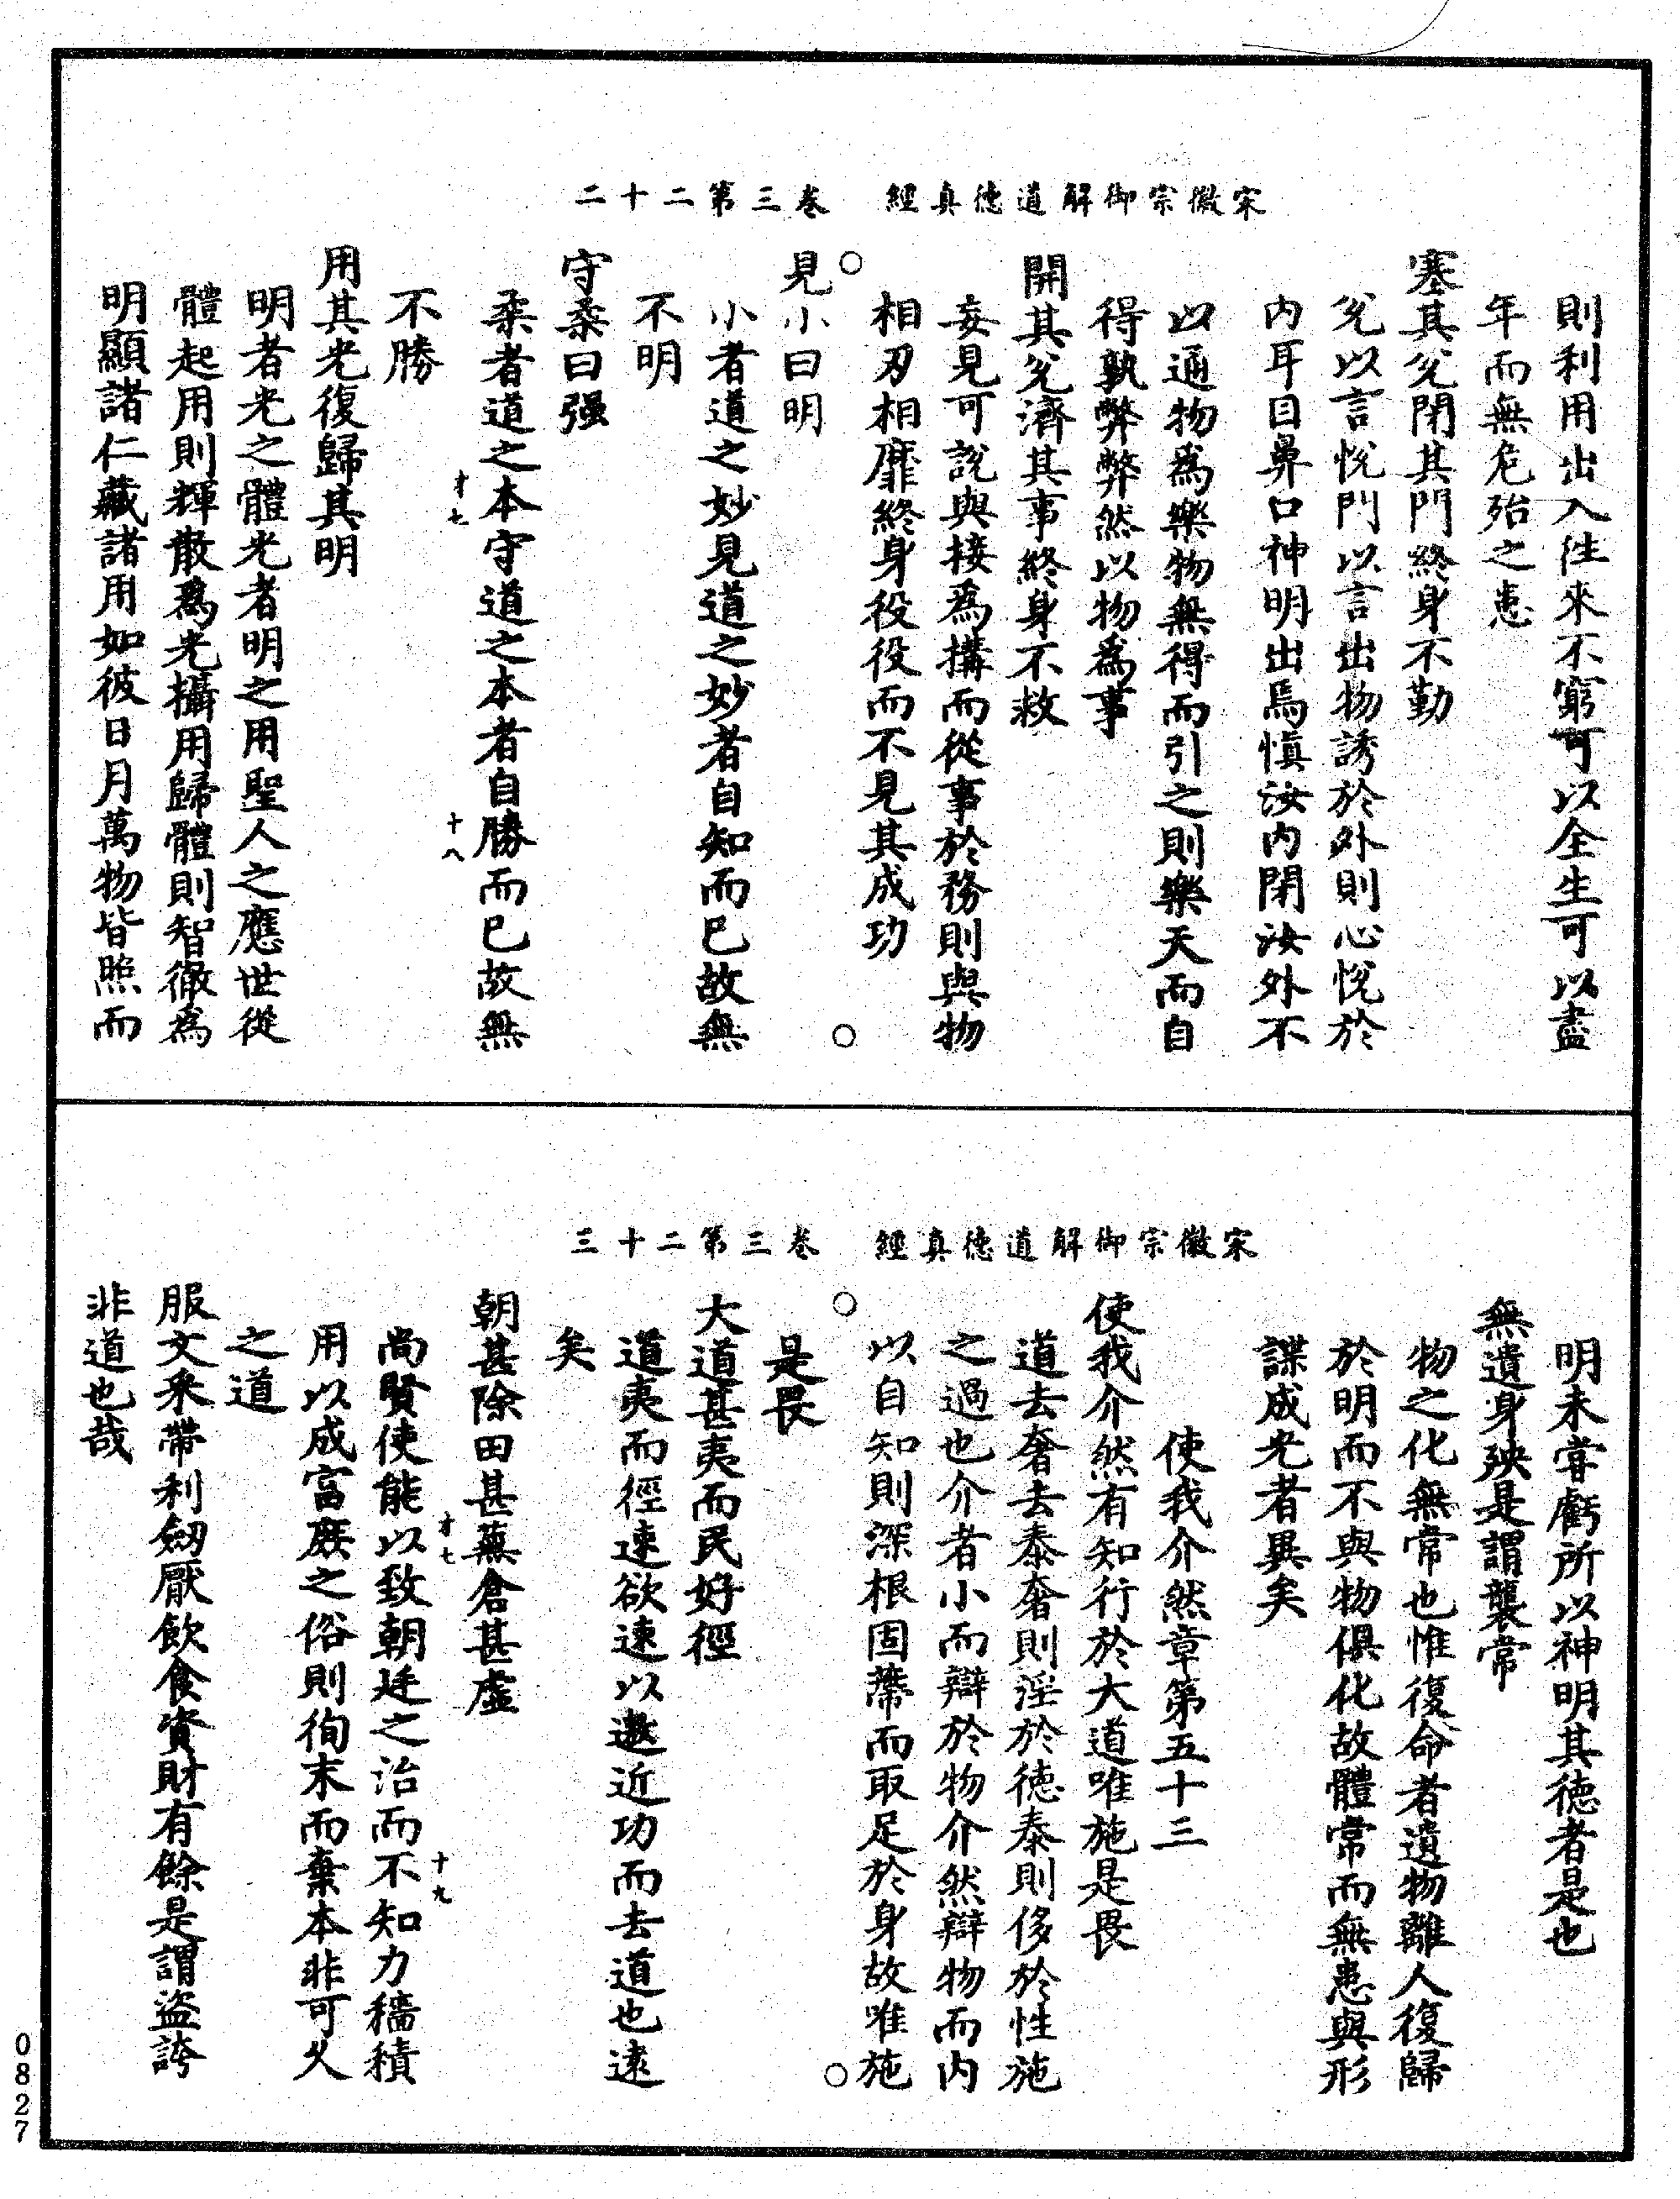 宋徽宗御解道德真經　卷三第二十二
則利用出入往來不窮可以全生可以盡
年而無危殆之患
塞其兊閉其門終身不勤
兊以言悅門以言出物誘於外則心悅於
內耳目鼻口神明出焉慎汝內閉汝外不
以通物為樂物無得而引之則樂天而自
得孰弊弊然以物為事
開其兊濟其事終身不救
妄見可說與接為搆而從事於務則與物
相刃相靡終身役役而不見其成功
見小曰明
小者道之妙見道之妙者自知而已故無
不明
守柔曰强
柔者道之本守道之本者自勝而已故無
才七　十八
不勝
用其光復歸其明
明者光之體光者明之用聖人之應世從
體起用則輝散為光攝用歸體則智徹為
明顯諸仁藏諸用如彼日月萬物皆照而
宋徽宗御解道德真經　卷三第二十三
明未甞虧所以神明其德者是也
無遺身殃是謂襲常
物之化無常也惟復命者遺物離人復歸
於明而不與物俱化故體常而無患與形
諜成光者異矣
使我介然章第五十三
使我介然有知行於大道唯施是畏
道去奢去泰奢則淫於德泰則侈於性施
之過也介者小而辯於物介然辯物而內
以自知則深根固蔕而取足於身故唯施
是畏
大道甚夷而民好徑
道夷而徑速欲速以邀近功而去道也遠
矣
朝甚除田甚蕪倉甚虛
才七　十九
尚賢使能以致朝廷之治而不知力穡積
用以成富庶之俗則徇末而棄本非可乆
之道
服文采帶利劒厭飲食資財有餘是謂盜誇
非道也哉
0827